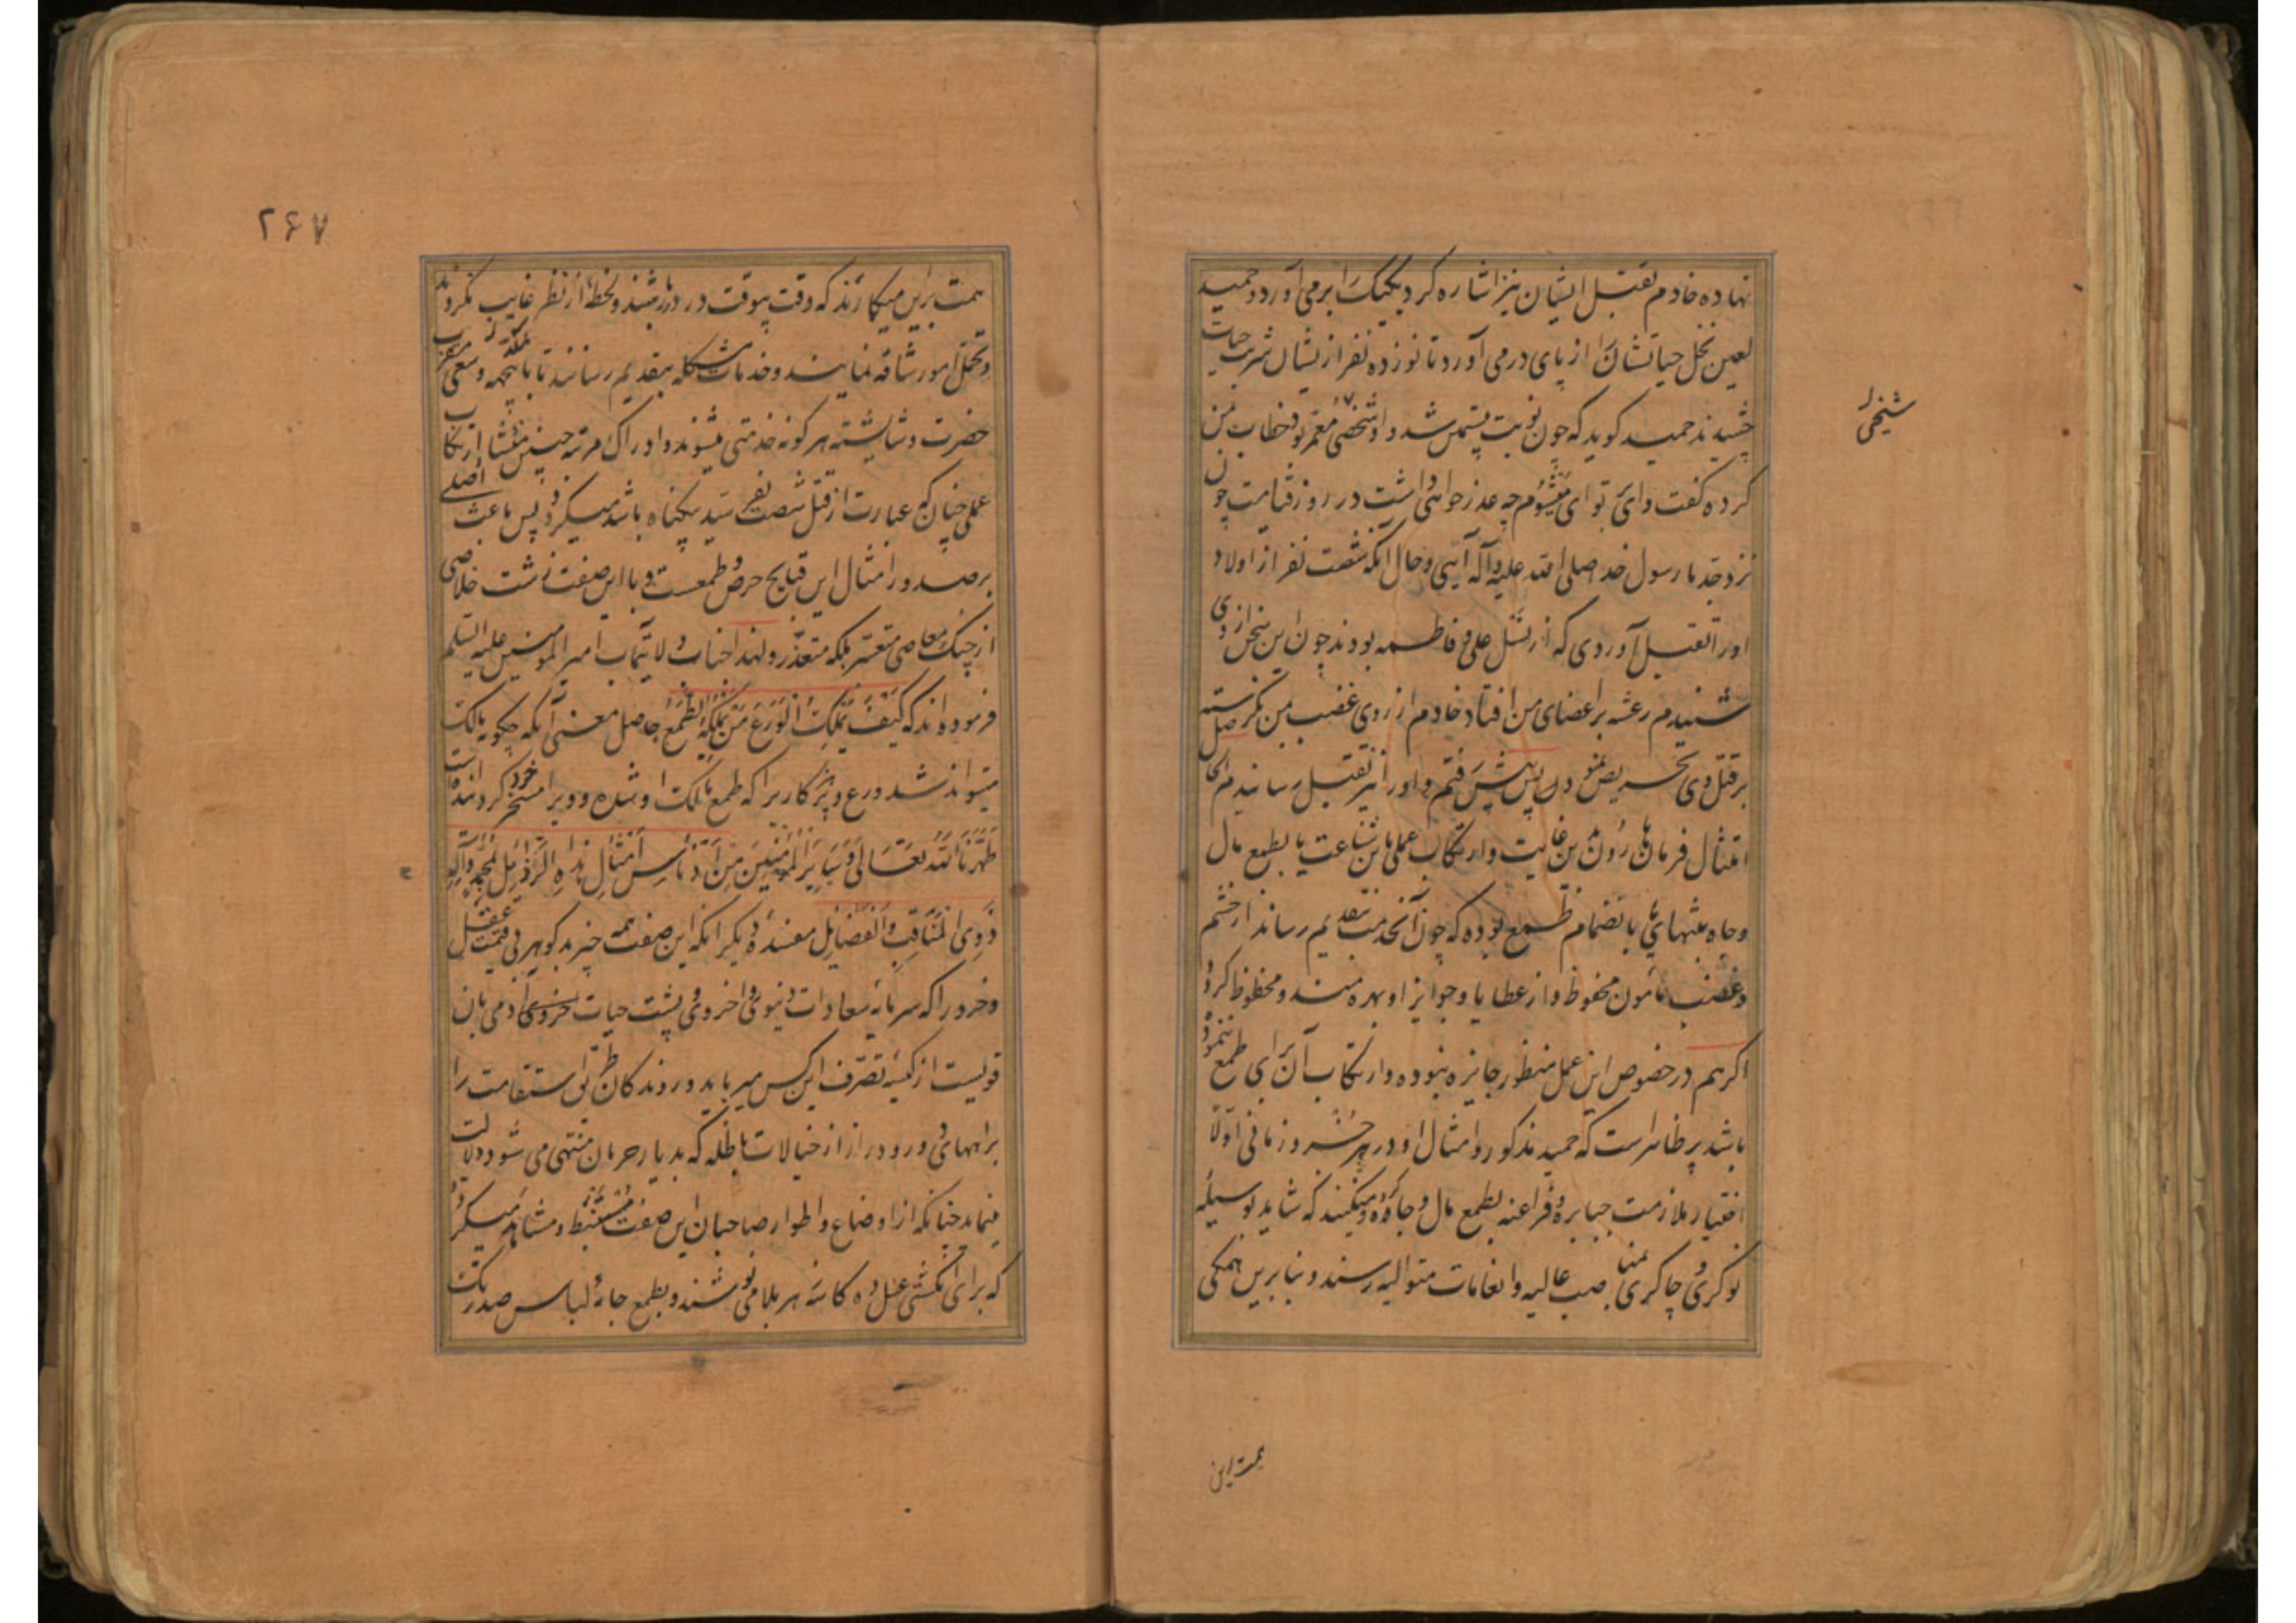 نهاده خادم بقتل ایشان نیز اشاره کرد یک یک را برمی آورد و حمید
لعین نخل حیاتشان را از پای در می آورد تا نوزده نفر از ایشان شربت حیات
چشیدند حمید کوید که چون نوبت به بیستم رسید و او شخصی معمر بود خطاب بمن
کرده کفت وای بر تو ای میشوم چه عذر خواهی داشت در روز قیامت چون
نزد جد ما رسول خدا صلی الله علیه و آله آیی و حال آنکه شصت نفر از اولاد
او را بقتل آوردی که از نسل علی و فاطمه بودند چون این سخن از وی
شنیدم رعشه بر اعضای من افتاد خادم از روی غضب بمن نکریسته
بر قتل وی تحریص نمود پس پیش رفتم و او را نیز بقتل رسانیدم الحاصل
امتثال فرمان هارون بدین غایت و ارتکاب عملی باین شناعت یا بطمع مال
و جاه بتنهایی یا بانضمام طمع بوده که چون آنخدمت بتقدیم رساند از خشم
و غضب مأمون محفوظ و از عطایا و جوایز او بهره مند و محظوظ کردد
اکر هم در خصوص این عمل منظور جایزه نبوده و ارتکاب آن برای طمع ننموده
باشد پر ظاهر است که حمید مذکور و امثال او در هر زمانی اولا
اختیار ملازمت جبابره و فراعنه بطمع مال و جاه کرده و میکنند که شاید بوسیله
نوکری و چاکری بمناصب عالیه و انعامات متوالیه رسند و بنابرین همکی
شیخی
همت براین
۲۶۷
همت براین میکمارند که وقت بیوقت در دربار باشند و لحظهٔ از نظر غایب نکردند
و تحمل امور شاقه نمایند و خدمات مشکله بتقدیم رسانند تا باینجهه و سعی مقرب
حضرت و شایسته هر کونه خدمتی میشوند و ادراک مرتبه چنین منشأ ارتکاب
عملی چنان که عبارت از قتل شصت نفر سید بیکناه باشد میکردد پس باعث اصلی
بر صدور امثال این قبایح حرص و طمعست و با این صفت زشت خلاصی
از چنک معاصی متعسر بلکه متعذر و لهذا جناب ولایتمآب امیر المومنین علیه السلم
فرموده اند که کَیْفَ یَمْلِکُ الْوَرَعَ مَنْ یَمْلِکُهُ الطَّمَعُ حاصل معنی آنکه چکونه مالک
میتواند شد ورع و پرهیزکاری را که طمع مالک او شده و ویرا مسخر خود کردانیده است
طَهَّرَنَا اللّهُ تَعَالَی وَ سَایِرَ الْمُؤْمِنِینَ مِنْ أَدْنَاسِ أَمْثَالِ هَذِهِ الرَّذَایِلِ بِمُحَمَّدٍ وَ آلِهِ
ذَوِی الْمَنَاقِبِ وَ الْفَضَایِلِ مفسدهٔ دیکر آنکه این صفت همه چیز بد کوهر بی قیمت عقل
و خرد را که سرمایه سعادات دنیوی و اخروی و پشت حیات آدمی بان
قویست از کیسه تصرف این کس میرباید و روندکان طریق استقامت را
براههای دور و دراز از خیالات باطله که بدیار حرمان منتهی می شود دلالت
مینماید چنانکه از اوضاع و اطوار صاحبان این صفت مستنبط و مشاهد میکردد
که برای انکشتی عسل ده کاسه زهر بلا می نوشند و بطمع جامهٔ لباس صد رنک